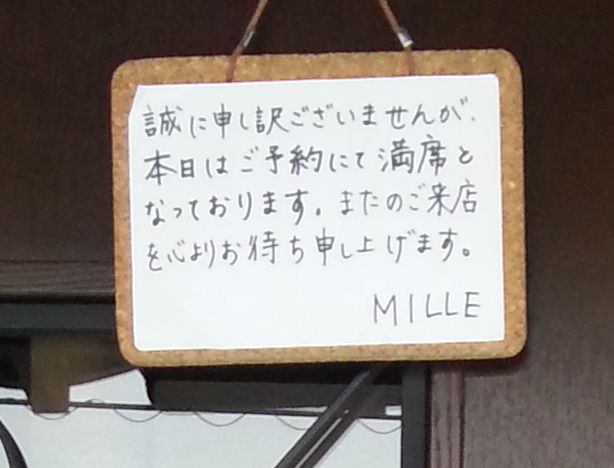 誠に申し訳ございませんが、
本日はご予約にて満席と
なっております。またのご来店
を心よりお待ち申し上げます。
MILLE